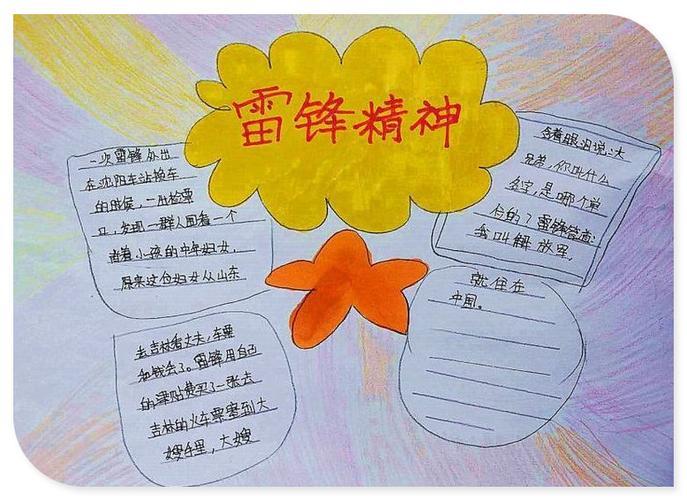 雷锋精神
一次雷锋外出
在沈阳车站换车
的时候，一出检票
口，发现一群人围看一个
背着小孩的中年妇女，
原来这位妇女从山东
去吉林看丈夫，车票
和钱丢了。雷锋用自己
的津贴费买了一张去
吉林的火车票塞到大
嫂手里，大嫂
含着眼泪说：大
兄弟，你叫什么
名字，是哪个单
位的？雷锋答道：
我叫解放军，
就住在
中国。